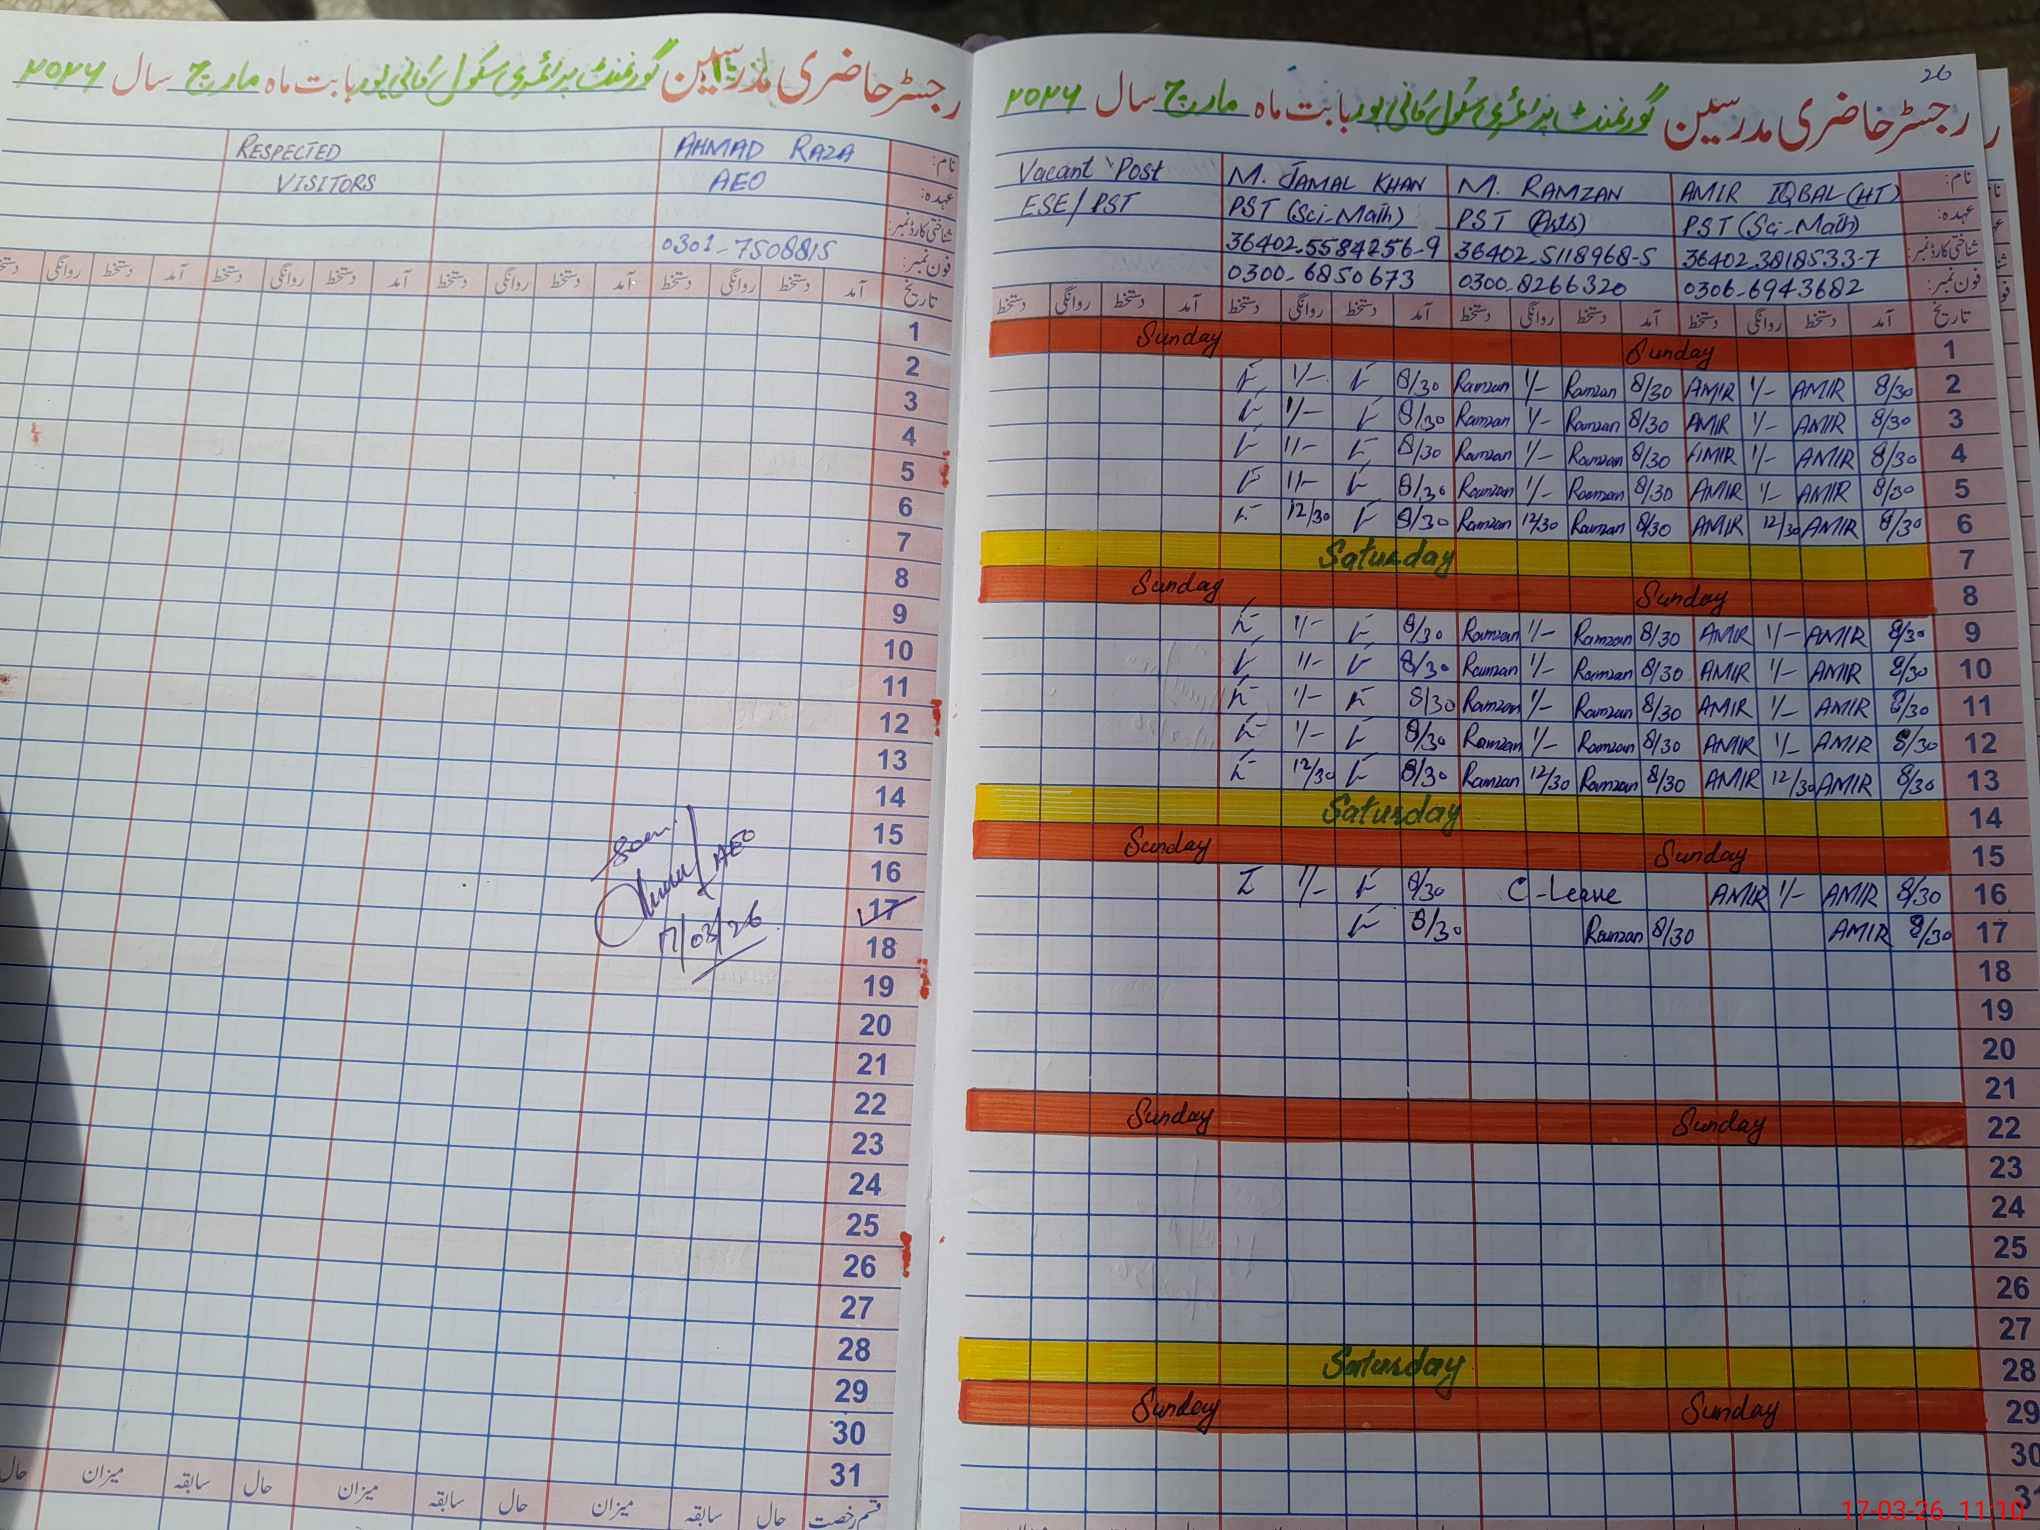 رجسٹر حاضری مدرسین گورنمنٹ پرائمری سکول کمانی پور بابت ماہ مارچ سال ۲۰۲۶
نام: AHMAD RAZA RESPECTED
عہدہ: AEO VISITORS
شناختی کارڈ نمبر:
فون نمبر: 0301-7508815
تاریخ آمد دستخط روانگی دستخط آمد دستخط روانگی دستخط آمد دستخط روانگی دستخط
1
2
3
4
5
6
7
8
9
10
11
12
13
14
15
16
17
18
19
20
21
22
23
24
25
26
27
28
29
30
31
Seen
AEO
17/03/26
قسم رخصت حال سابقہ میزان حال سابقہ میزان حال سابقہ میزان حال
26
رجسٹر حاضری مدرسین گورنمنٹ پرائمری سکول کمانی پور بابت ماہ مارچ سال ۲۰۲۶
نام: AMIR IQBAL (HT) M. RAMZAN M. JAMAL KHAN Vacant Post
عہدہ: PST (Sci-Math) PST (Arts) PST (Sci-Math) ESE/PST
شناختی کارڈ نمبر: 36402-3818533-7 36402-5118968-5 36402-5584256-9
فون نمبر: 0306-6943682 0300-8266320 0300-6850673
تاریخ آمد دستخط روانگی دستخط آمد دستخط روانگی دستخط آمد دستخط روانگی دستخط آمد دستخط روانگی دستخط
1 Sunday Sunday
2 8/30 AMIR 1/- AMIR 8/30 Ramzan 1/- Ramzan 8/30 1/-
3 8/30 AMIR 1/- AMIR 8/30 Ramzan 1/- Ramzan 8/30 1/-
4 8/30 AMIR 1/- AMIR 8/30 Ramzan 1/- Ramzan 8/30 1/-
5 8/30 AMIR 1/- AMIR 8/30 Ramzan 1/- Ramzan 8/30 1/-
6 8/30 AMIR 12/30 AMIR 8/30 Ramzan 12/30 Ramzan 8/30 12/30
7 Saturday
8 Sunday Sunday
9 8/30 AMIR 1/- AMIR 8/30 Ramzan 1/- Ramzan 8/30 1/-
10 8/30 AMIR 1/- AMIR 8/30 Ramzan 1/- Ramzan 8/30 1/-
11 8/30 AMIR 1/- AMIR 8/30 Ramzan 1/- Ramzan 8/30 1/-
12 8/30 AMIR 1/- AMIR 8/30 Ramzan 1/- Ramzan 8/30 1/-
13 8/30 AMIR 12/30 AMIR 8/30 Ramzan 12/30 Ramzan 8/30 12/30
14 Saturday
15 Sunday Sunday
16 8/30 AMIR 1/- AMIR C-Leave 8/30 1/-
17 8/30 AMIR 8/30 Ramzan 8/30
18
19
20
21
22 Sunday Sunday
23
24
25
26
27
28 Saturday
29 Sunday Sunday
30
31
17-03-26 11:10